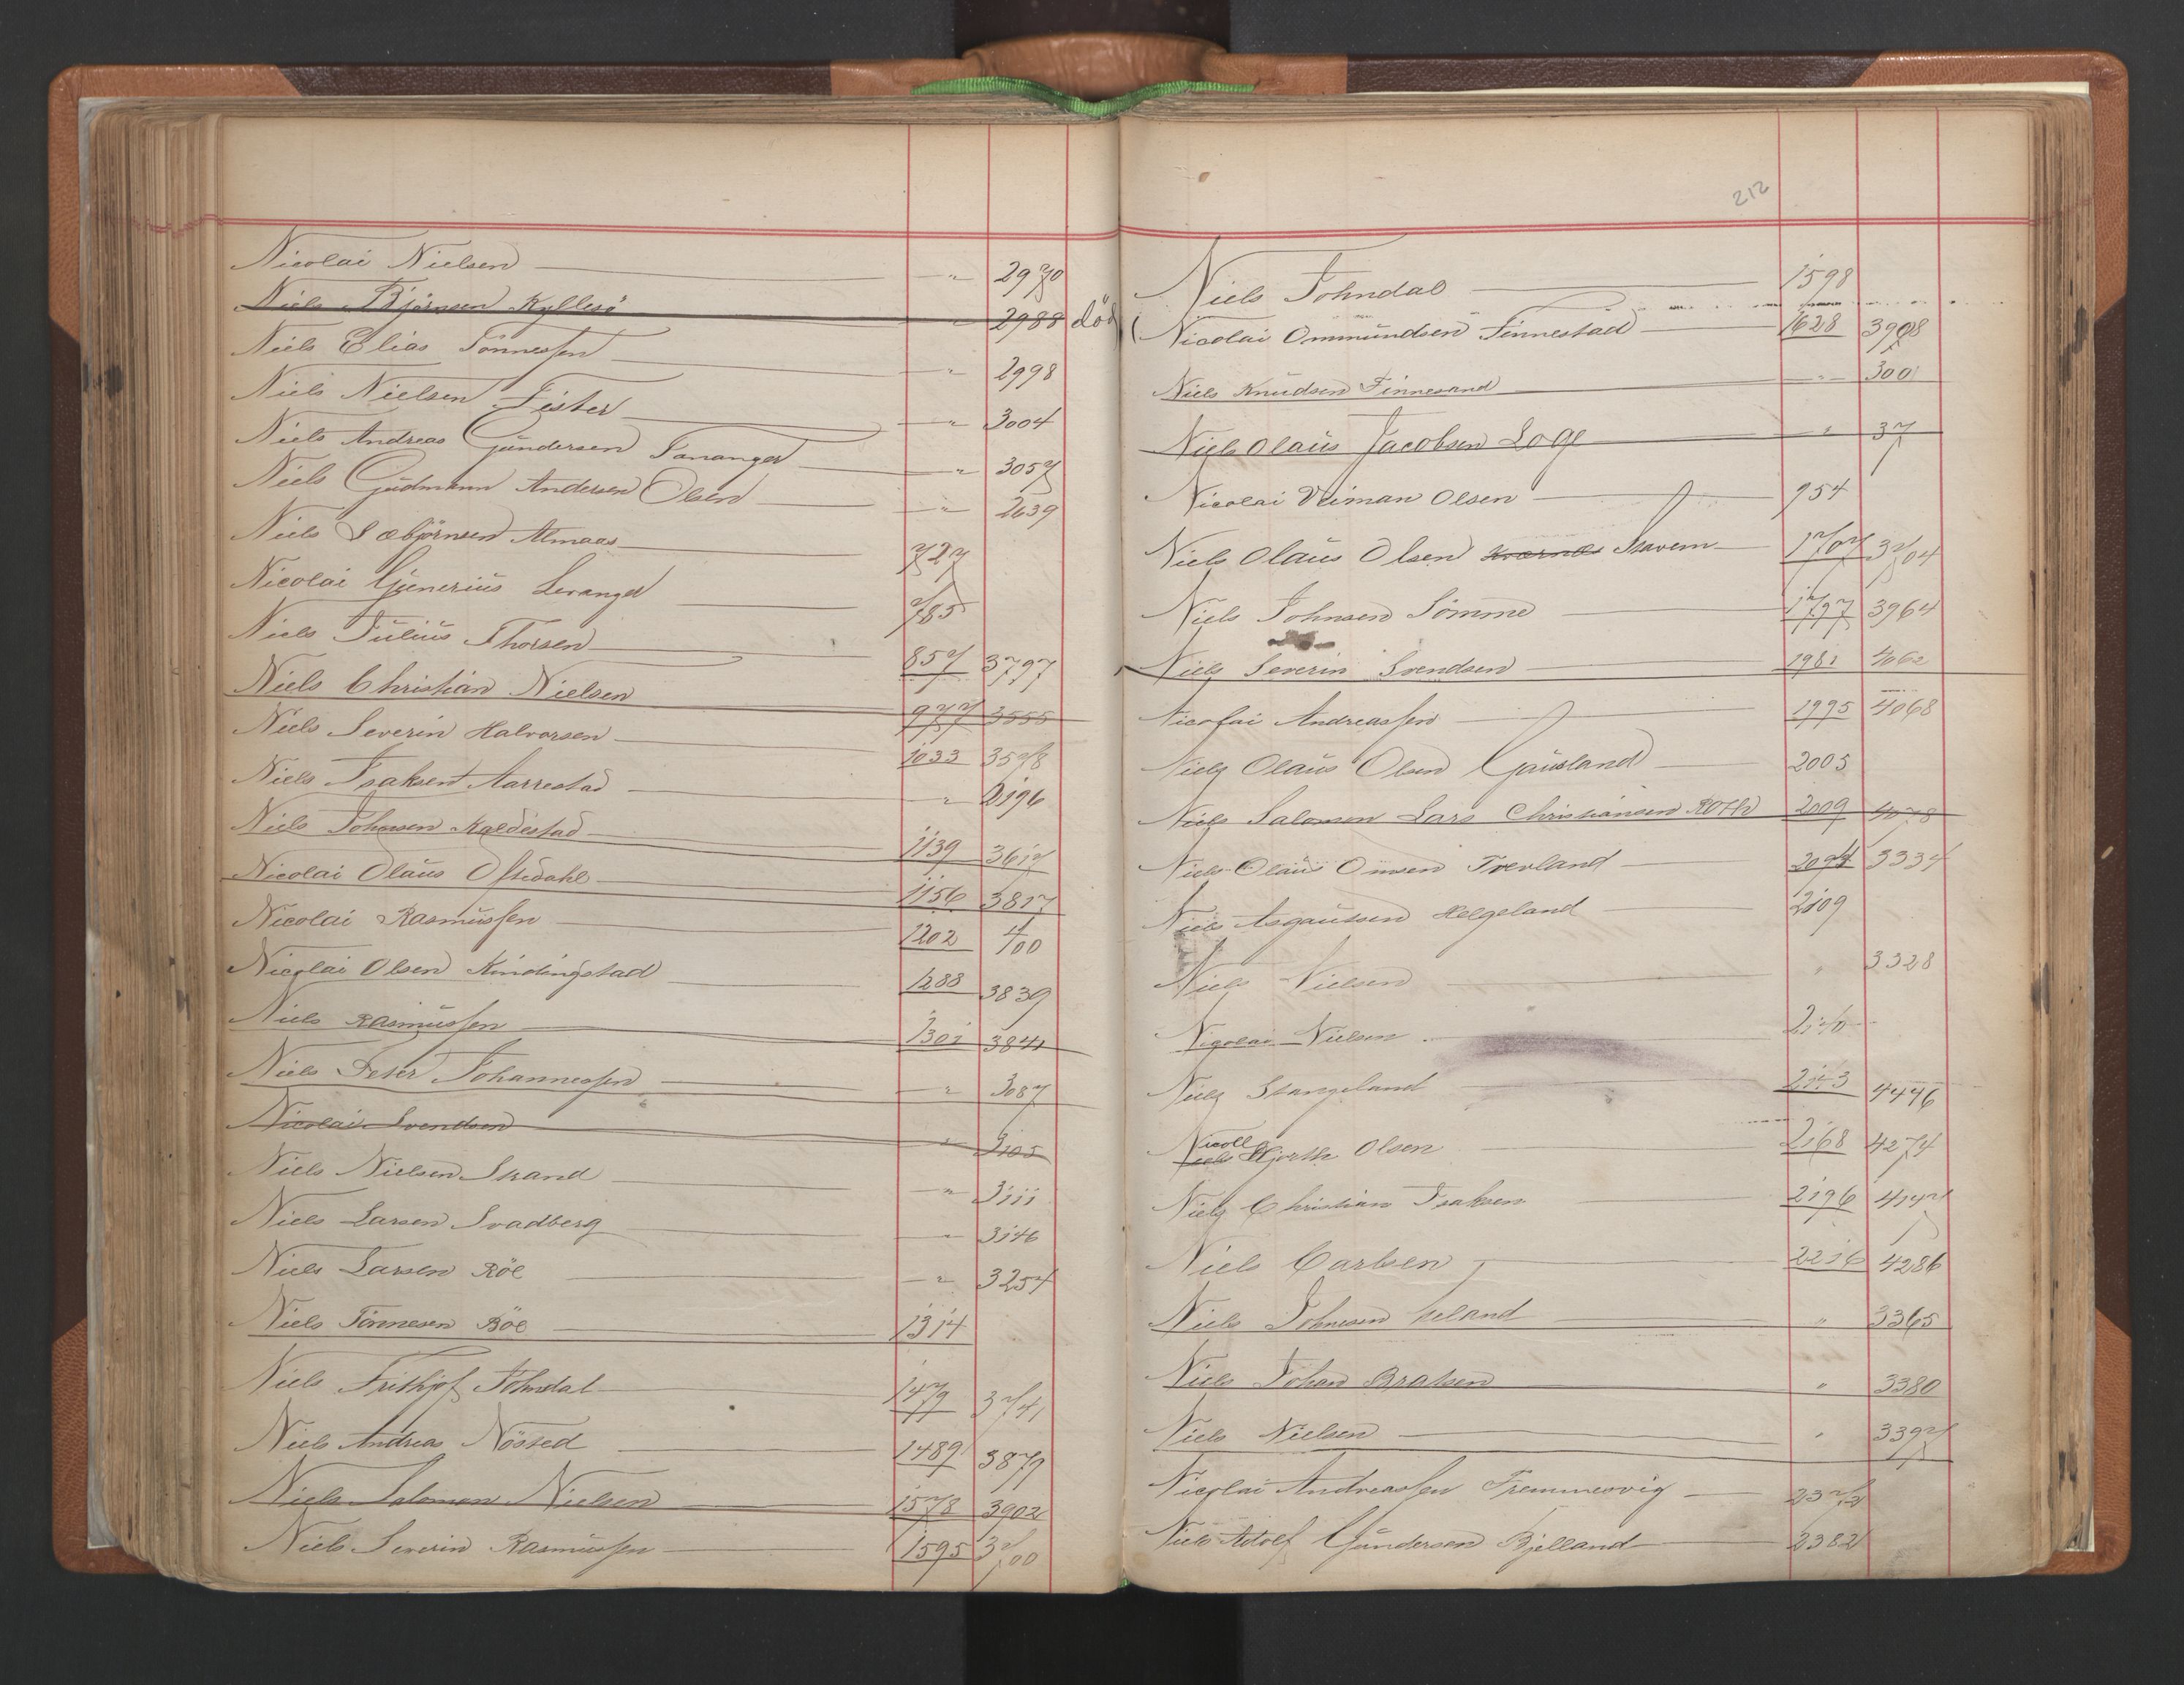 Nicolai Nielsen " 2970
Niels Björnsen Kyllesö " 2988 död
Niels Elias Tönnessen " 2998
Niels Nielsen Fister " 3004
Niels Andreas Gundersen Tananger " 3057
Niels Gudmann Andersen Olsen " 2639
Niels Sæbjörnsen Almaas 727
Nicolai Gunerius Levanger 785
Niels Julius Thorsen 857 3797
Niels Christian Nielsen 977 3555
Niels Severin Halvorsen 1033 3578
Niels Isaksen Aarrestad " 2196
Niels Johnsen Kaldestad 1139 3617
Nicolai Olaus Oftedahl 1156 3817
Nicolai Rasmussen 1202 400
Nicolai Olsen Kindingstad 1288 3839
Niels Rasmussen 1301 3841
Niels Peter Johannessen " 3087
Nicolai Svendsen " 3105
Niels Nielsen Strand " 3111
Niels Larsen Svadberg " 3146
Niels Larsen Röe " 3254
Niels Tönnesen Böe 1314
Niels Frithjof Tohndal 1479 3741
Niels Andreas Nösted 1489 3879
Niels Salomon Nielsen 1578 3902
Niels Severin Rasmussen 1595 3700
212
Niels Tohndal 1598
Nicolai Ommundsen Finnestad 1628 3908
Niels Knudsen Finnesand " 300
Niels Olaus Jacobsen Loge " 37
Nicolai Veiman Olsen 954
Niels Olaus Olsen Kværnæs Stavem 1707 3704
Niels Johnsen Sömme 1797 3964
Niels Severin Svendsen 1981 4062
Nicolai Andreassen 1995 4068
Niels Olaus Olsen Gausland 2005
Niels Salomon Lars Christiansen Roth 2009 4078
Niels Olaus Omsen Tverland 2094 3334
Niels Asgautsen Helgeland 2109
Niels Nielsen " 3328
Nicolai Nielsen 2140
Niels Stangeland 2143 4446
Nicoll
Niels Hjorth Olsen 2168 4274
Niels Christian Isaksen 2196 4147
Niels Carlsen 2216 4286
Niels Johnsen heland " 3365
Niels Johan Bratsen " 3380
Niels Nielsen " 3397
Nicolai Andreassen Tremmesvig 2372
Niels Adolf Gundersen Bjelland 2382